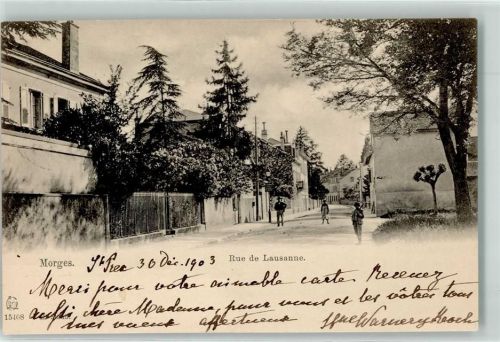 Morges. St Prex 30 Déc. 1903 Rue de Lausanne.
Merci pour votre aimable carte. Recevez
aussi, chère Madame, pour vous et les vôtres tous
15408 mes vœux affectueux